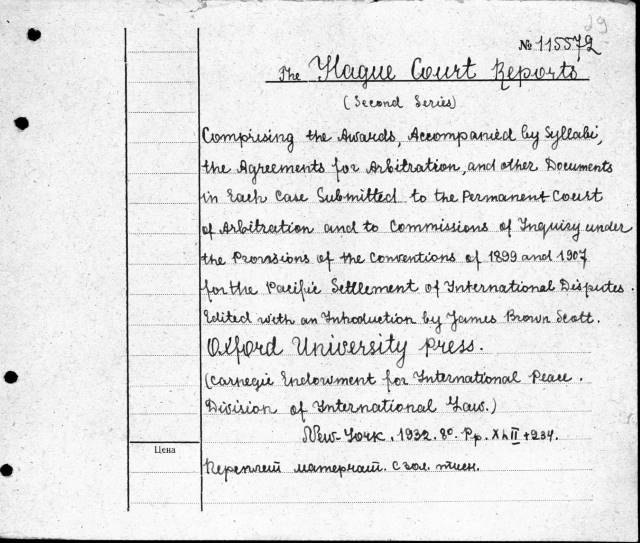 29
№ 115572
The Hague Court Reports
(Second Series)
Comprising the Awards, Accompanied by Syllabi,
the Agreements for Arbitration, and other Documents
in Each Case Submitted to the Permanent Court
of Arbitration and to Commissions of Inquiry under
the Provisions of the Conventions of 1899 and 1907
for the Pacific Settlement of International Disputes.
Edited with an Introduction by James Brown Scott.
Oxford University press.
(Carnegie Endowment for International Peace.
Division of International Law.)
New-York, 1932. 8o. Pp. XLII + 234.
Цена
Переплет матерчат. с зол. тисн.